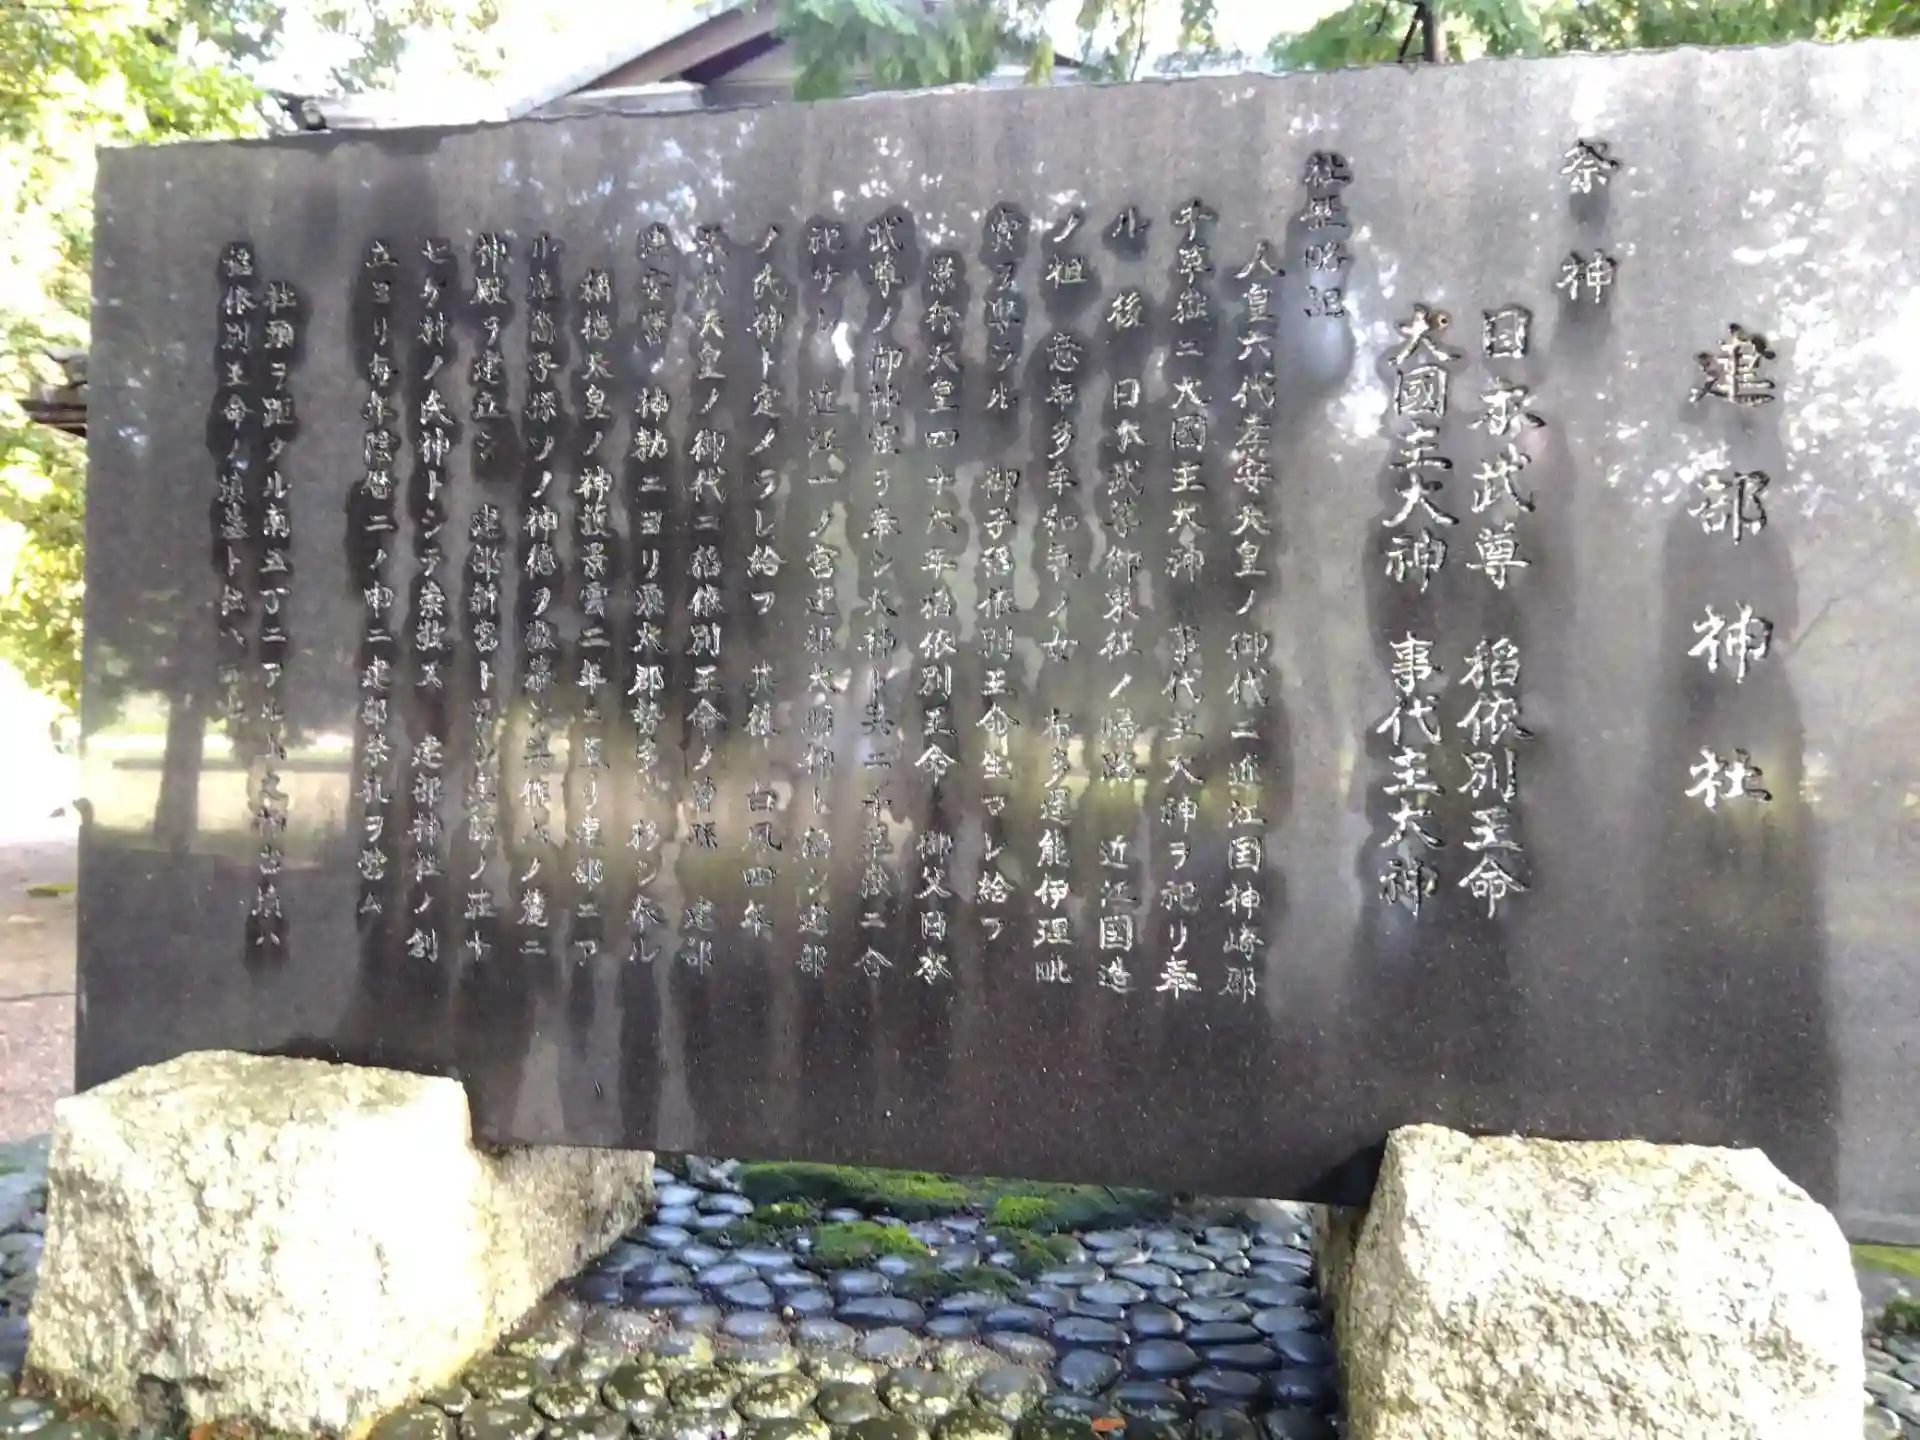 建部神社
祭神
日本武尊 稻依別王命
大國主大神 事代主大神
社歴略記
人皇六代孝安天皇ノ御代ニ近江国神崎郡
千草嶽ニ大國主大神 事代主大神ヲ祀リ奉
ル 後 日本武尊御東征ノ帰路 近江国造
ノ祖 意布多牟和気ノ女 布多遅能伊理毗
賣ヲ娶シル 御子稻依別王命生マレ給フ
景行天皇四十六年稻依別王命 御父日本
武尊ノ御神霊ヲ奉シ大神ト共ニ千草嶽ニ合
祀サレ 近江一ノ宮建部大明神ト称シ建部
ノ氏神ト定メラレ給フ 其後 白凤四年
天武天皇ノ御代ニ稻依別王命ノ曽孫 建部
連安麿 神勅ニヨリ栗太郡勢多ニ移シ奉ル
稱德天皇ノ神護景雲二年ニ至リ建部ニア
ル 子孫ソノ神德ヲ ノ麓ニ
神殿ヲ建立シ 建部新宮ト ノ荘十
七ケ村ノ氏神トシテ崇敬ス 建部神社ノ創
立ヨリ毎年陰暦二ノ申ニ建部祭礼ヲ営ム
社頭ヲ距タル南五丁ニアル ハ
稻依別王命ノ墳墓ト伝ヘ